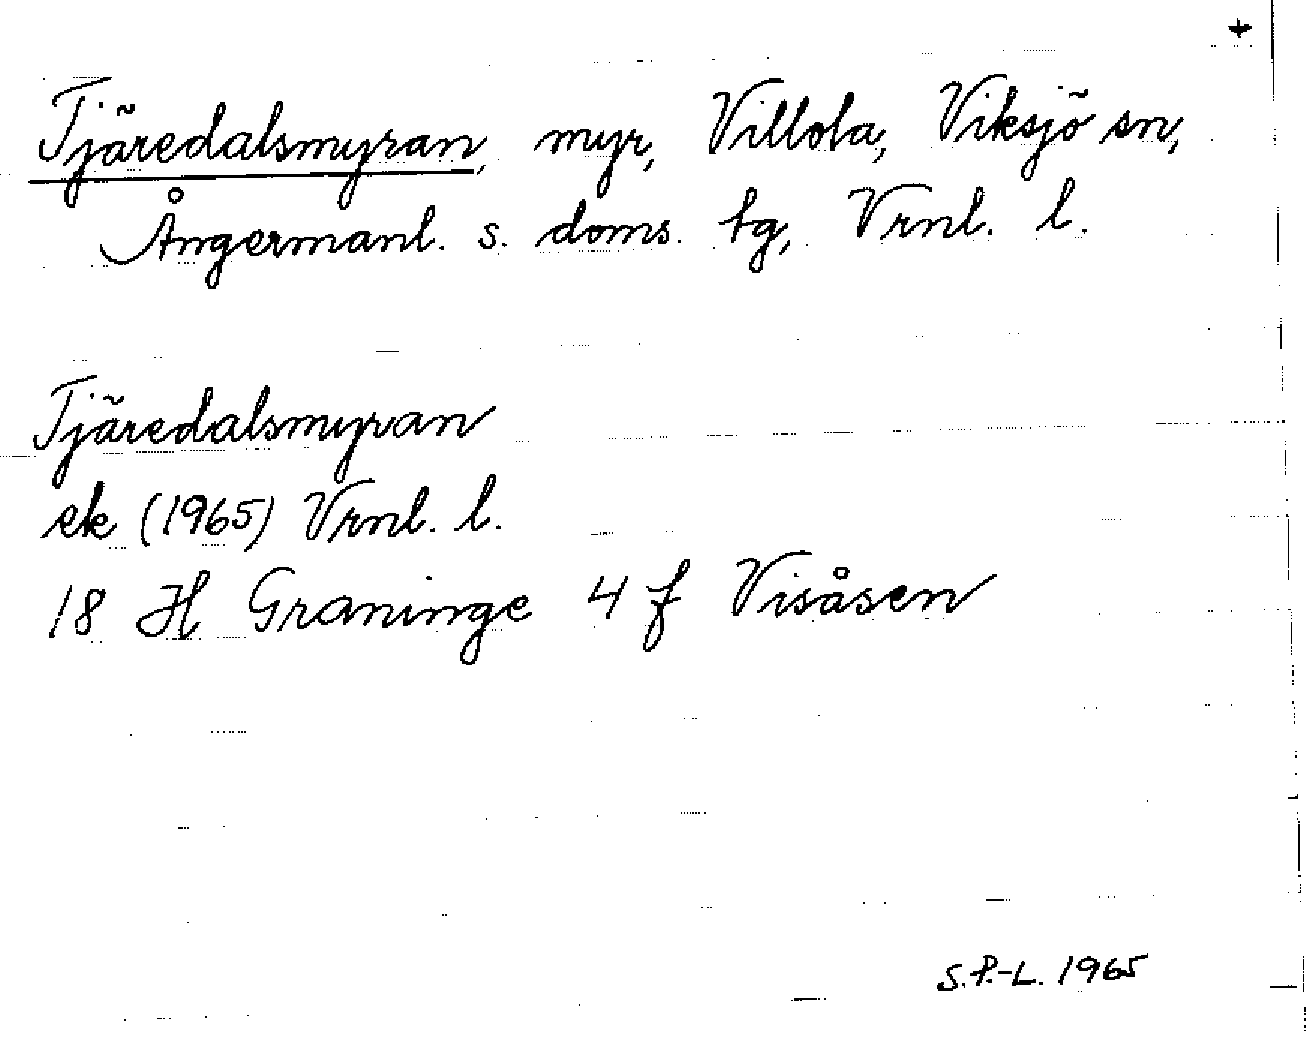 Tjäredalsmyran, myr, Villola, Viksjö sn,
Ångermanl. s. doms. tg, Vrnl. l.
Tjäredalsmyran
ek (1965) Vrnl. l.
18 H Graninge 4 f Visåsen
S.P.-L. 1965